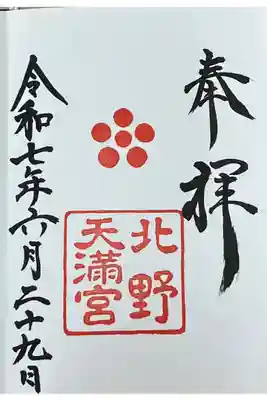 奉拝
北野
天満宮
令和七年六月二十九日